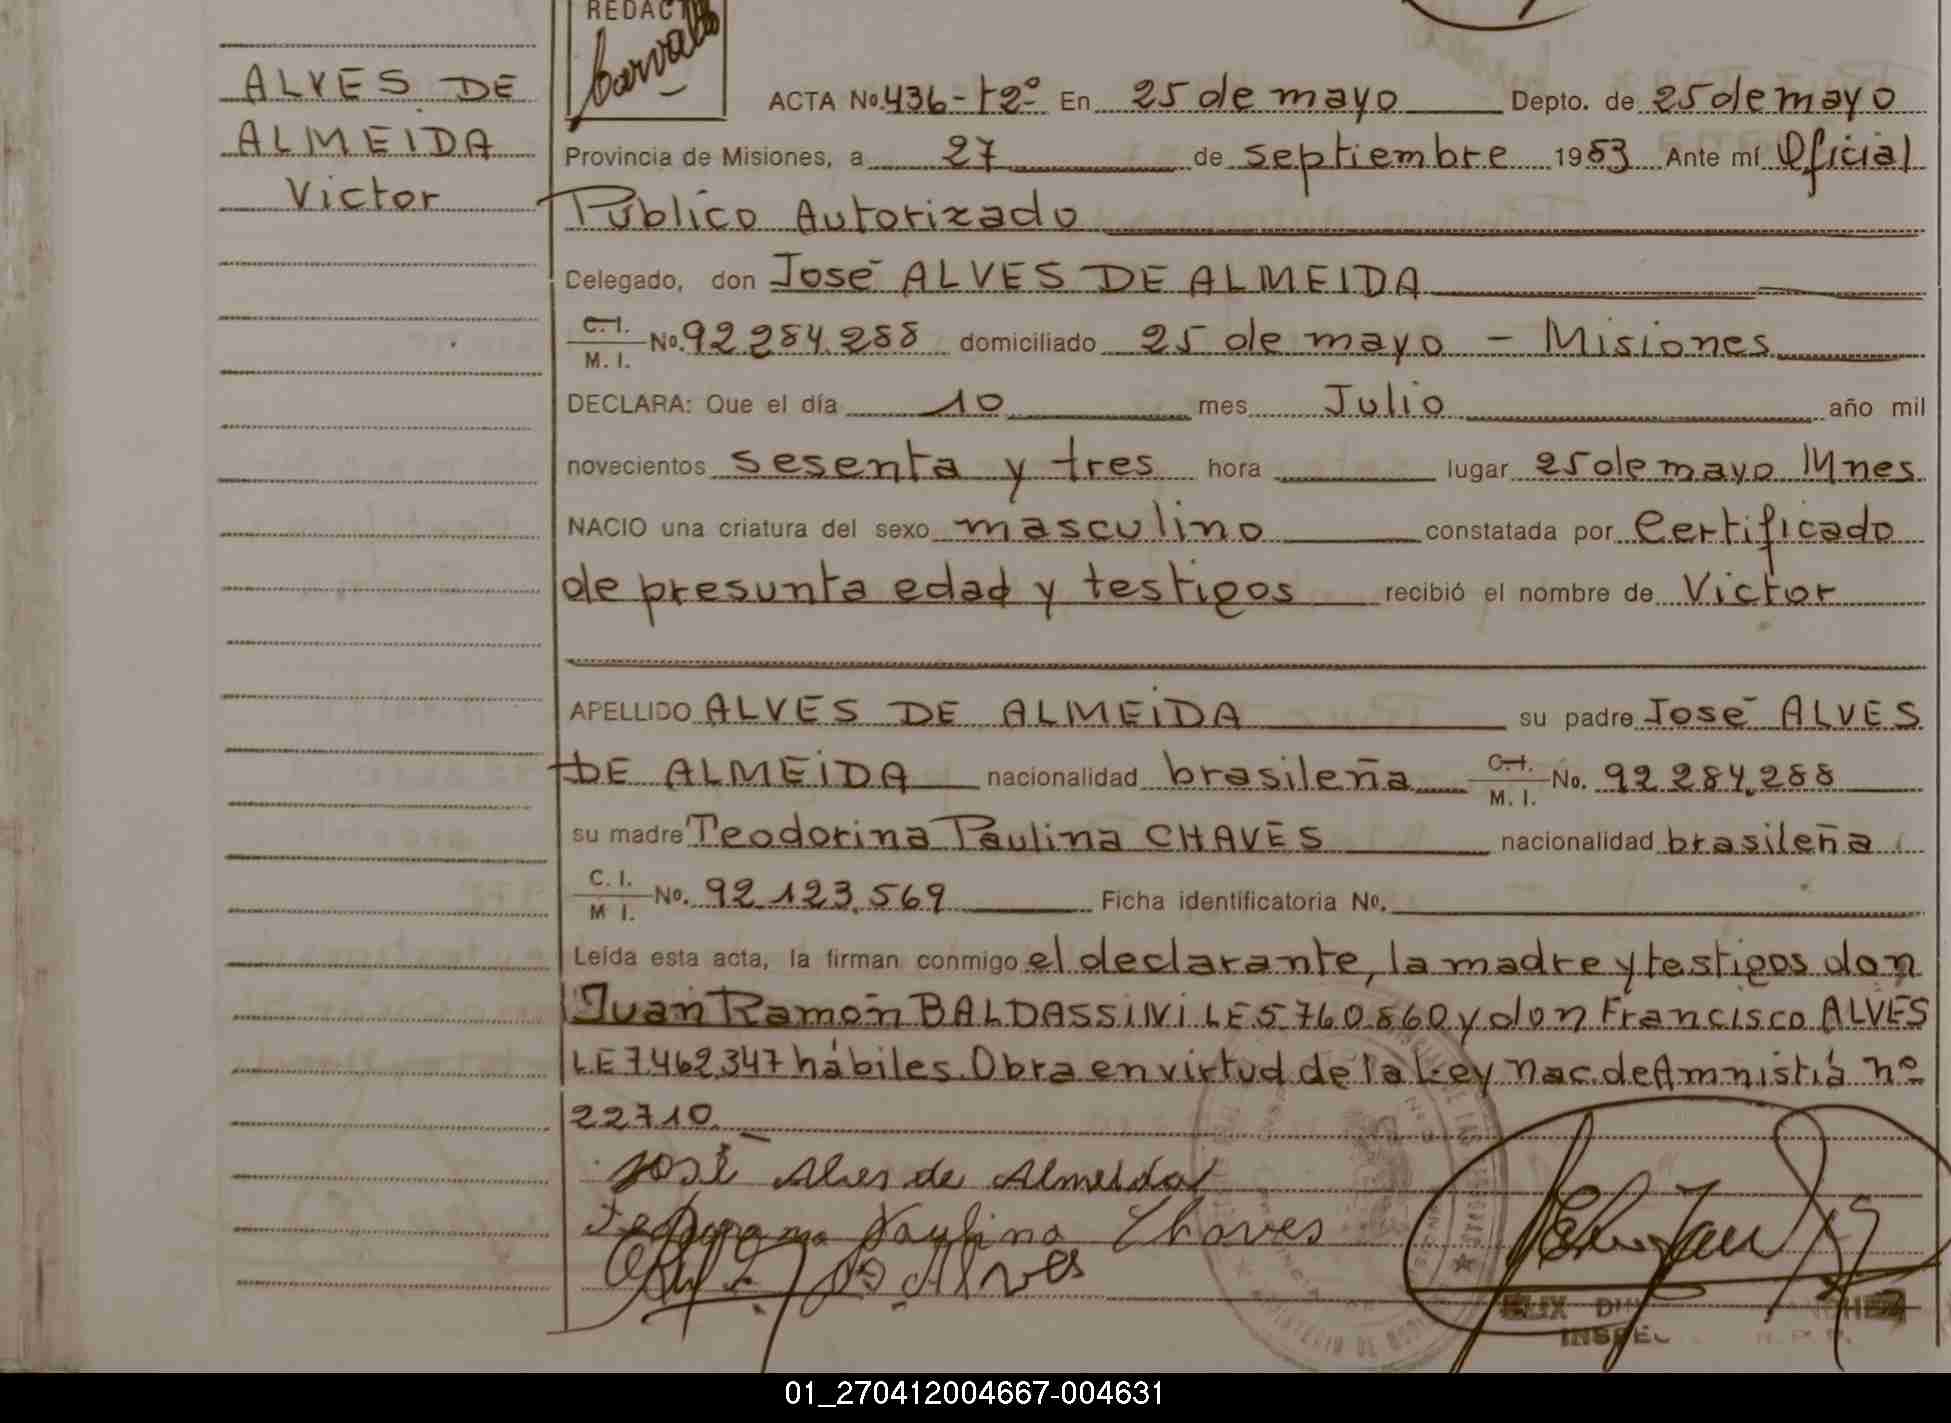 REDAC
Carvallo
ALVES DE
ALMEIDA
Victor
ACTA No. 436-T2º En 25 de mayo Depto. de 25 de mayo
Provincia de Misiones, a 27 de septiembre 1983 Ante mí Oficial
Público Autorizado
Celegado, don José ALVES DE ALMEIDA
C.I. M.I. No. 92.284.288 domiciliado 25 de mayo - Misiones
DECLARA: Que el día 10 mes Julio año mil
novecientos sesenta y tres hora lugar 25 de mayo Mnes
NACIO una criatura del sexo masculino constatada por Certificado
de presunta edad y testigos recibió el nombre de Victor
APELLIDO ALVES DE ALMEIDA su padre José ALVES
DE ALMEIDA nacionalidad brasileña C.I. M.I. No. 92.284.288
su madre Teodorina Paulina CHAVES nacionalidad brasileña
C.I. M I. No. 92.123.569 Ficha identificatoria No.
Leída esta acta, la firman conmigo el declarante, la madre y testigos don
Juan Ramón BALDASSINI LE 5.760.860 y don Francisco ALVES
LE 7.462.347 hábiles. Obra en virtud de la Ley Nac. de Amnistía nº
22710.
José Alves de Almeida
Paulina Chaves
Alves
01_270412004667-004631